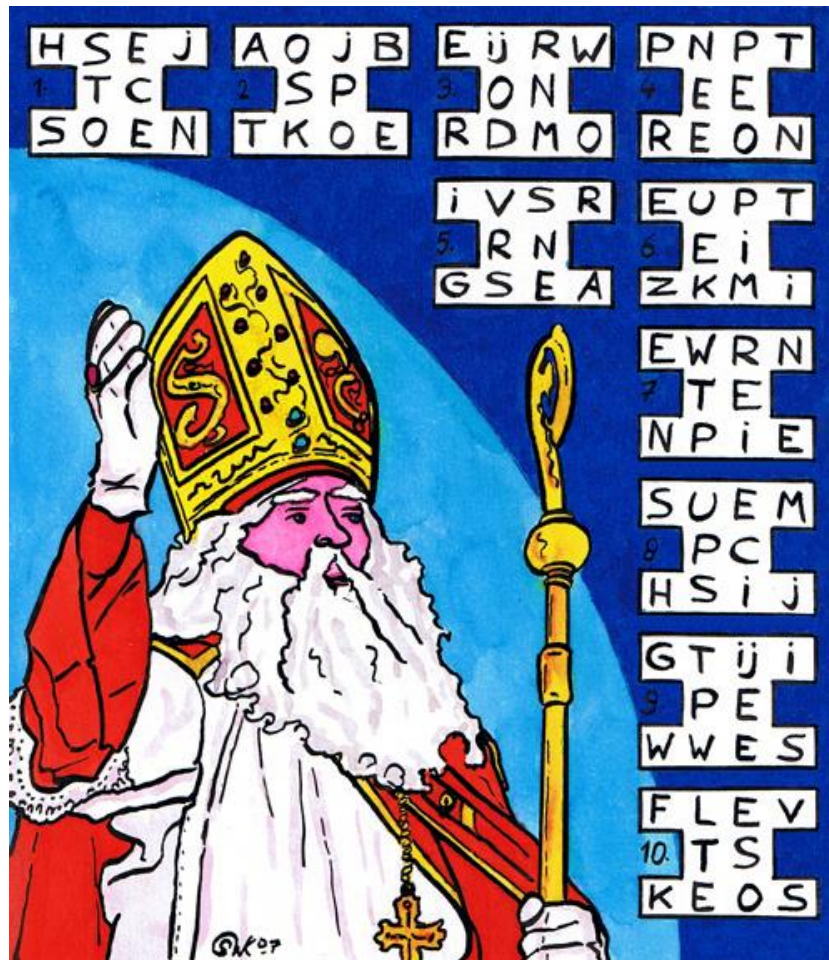 H S E J
1. T C
S O E N
A O J B
2 S P
T K O E
E IJ R W
3. O N
R D M O
P N P T
4 E E
R E O N
i V S R
5. R N
G S E A
E U P T
6 E i
Z K M i
E W R N
7 T E
N P i E
S U E M
8 P C
H S i j
G T ij i
9 P E
W W E S
F L E V
10. T S
K E O S